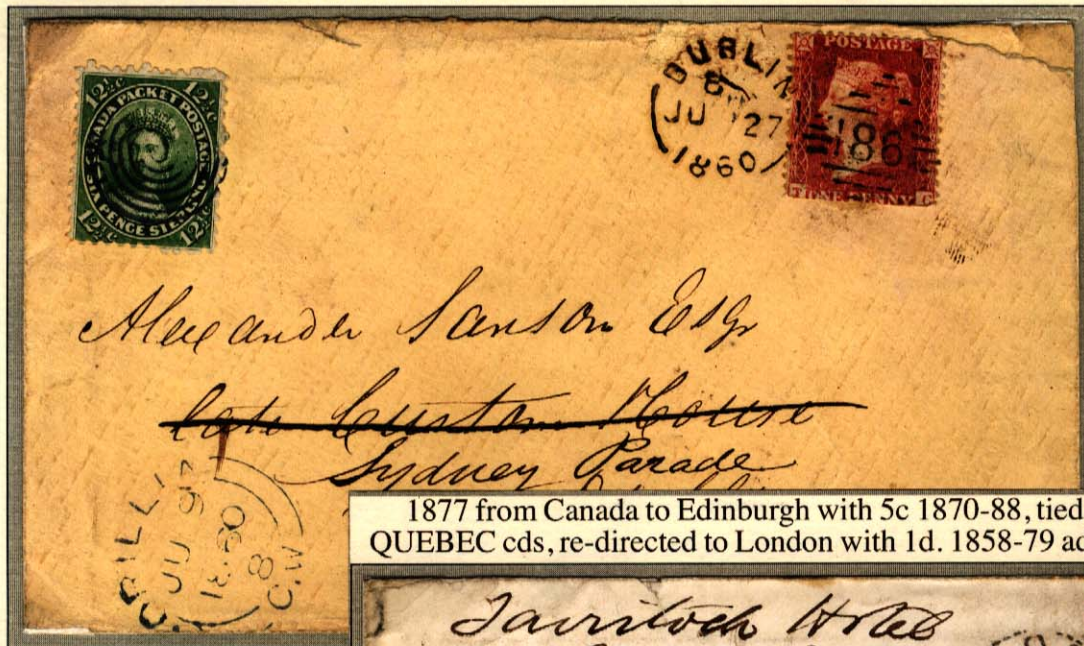 12½c 12½c
CANADA PACKET POSTAGE
SIX PENCE STERLING
12½c 12½c
DUBLIN
8
JU 27
1860
POSTAGE
186
T ONE PENNY G
Alexander Sanson Esqr
late Custom House
Sydney Parade
ORILLIA
JU 9
1860
C.W
1877 from Canada to Edinburgh with 5c 1870-88, tied
QUEBEC cds, re-directed to London with 1d. 1858-79 ad
Tavistock Hotel